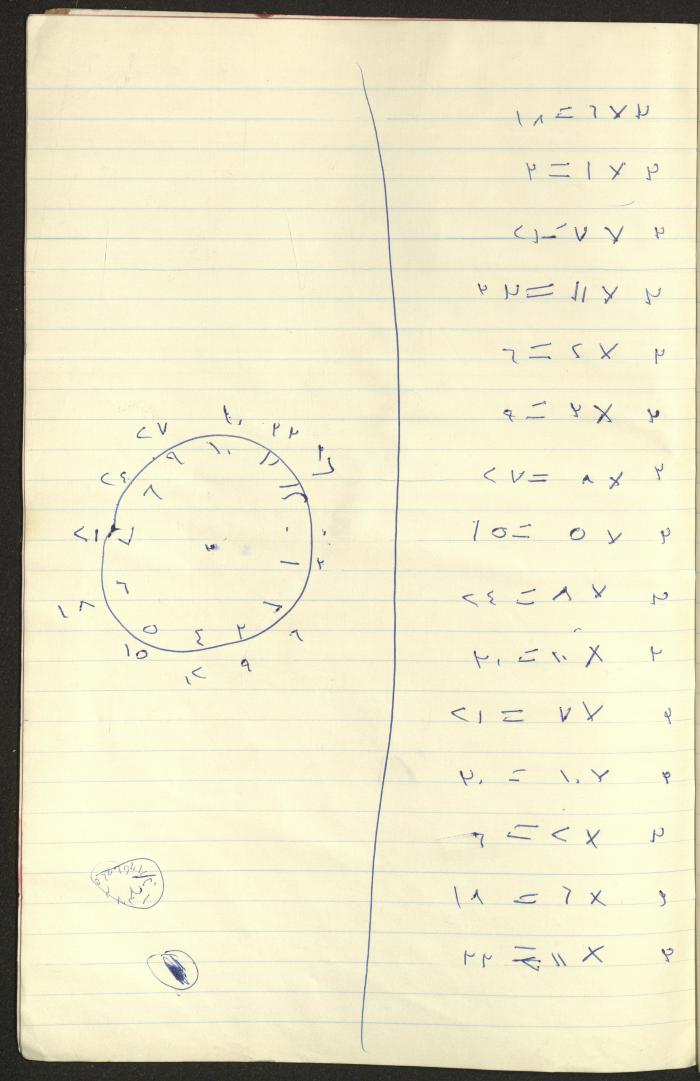 ٣ × ٦ = ١٨
٣ × ١ = ٣
٣ × ٧ = ٢١
٣ × ١١ = ٣٣
٣ × ٢ = ٦
٣ × ٣ = ٩
٣ × ٩ = ٢٧
٣ × ٥ = ١٥
٣ × ٨ = ٢٤
٣ × ١٠ = ٣٠
٣ × ٧ = ٢١
٣ × ١٠ = ٣٠
٣ × ٢ = ٦
٣ × ٦ = ١٨
٣ × ١١ = ٣٣
٣
٠ ١ ٢ ٣ ٤ ٥ ٦ ٧ ٨ ٩ ١٠ ١١ ١٢
٠ ٣ ٦ ٩ ١٢ ١٥ ١٨ ٢١ ٢٤ ٢٧ ٣٣